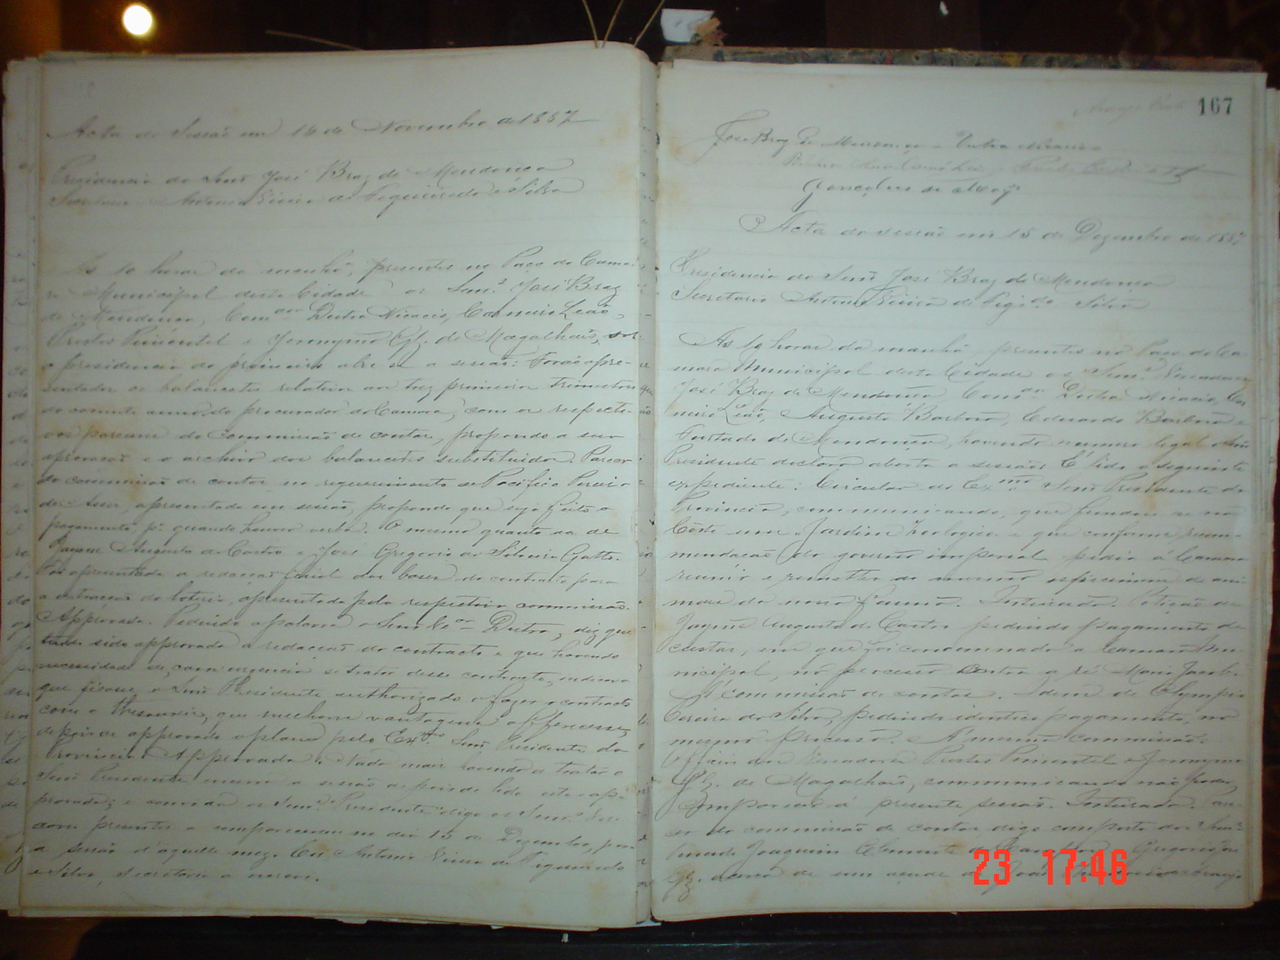 Acta da Sessão em 16 de Novembro de 1887
Presidencia do Senr José Braz de Mendonça
Secretario Antonio Vieira de Figueiredo e Silva
As 10 horas da manhã, presentes no Paço da Cama-
ra Municipal desta Cidade os Senrs José Braz
de Mendonça, Comdor Dutra Nicacio, Carneiro Leão,
Prestes Pimentel e Jeronymo Glz. de Magalhães, sob
a presidencia do primeiro abre-se a sessão: Forão apre-
sentados os balancetes relativos aos tres primeiros trimestres
do corrente anno do procurador da Camara, com os respecti-
vos pareceres da commissão de contas, propondo a sua
aprovação e o archivo dos balancetes substituidos. Parecer
da commissão de contas no requerimento de Pacifico Perei-
ra da Silva, apresentado em sessão, propondo que seja feito o
pagamento, quando houver verba. O mesmo quanto ao de
Jayme Augusto de Castro e José Gregorio da Silveira
Foi apresentada a redacção final das bases do contracto para
a extracção da loteria, apresentada pela respectiva commissão.
Approvada. Pedindo a palavra o Senr Dutra, diz que
tendo sido approvada a redacção do contracto e que havendo
necessidade de, com urgencia se tratar desse contracto, indicava
que ficasse o Senr Presidente authorizado a fazer o contracto
com o thesoureiro, que melhores vantagens offerecesse
depois de approvado o plano pelo Exmo Senr Presidente da
Provincia. Approvada. Nada mais havendo a tratar o
Senr Presidente encerra a sessão depois de lida esta e ap-
provada; e convida os Senrs Presidente digo os Senrs Vere-
adores presentes a comparecerem no dia 15 de Dezembro, para
a sessão d'aquelle mez. Eu Antonio Vieira de Figueiredo
e Silva, secretario a escrevi.
167
José Braz de Mendonça Dutra Nicacio
Gonçalves de Mag
Acta da sessão em 15 de Dezembro de 1887
Presidencia do Senr José Braz de Mendonça
Secretario Antonio Vieira de Figdo e Silva
As 10 horas da manhã presentes no Paço da Ca-
mara Municipal desta Cidade os Senrs Vereadores
José Braz de Mendonça, Comdor Dutra Nicacio, Car-
neiro Leão, Augusto Barbosa, Eduardo Barbosa e
Furtado de Mendonça, havendo numero legal o Senr
Presidente declara aberta a sessão. É lido o seguinte
expediente: Circular do Exmo Senr Presidente da
Provincia, communicando, que fundou-se na
Côrte um Jardim Zoologico e que conforme recom-
mendação do governo imperial pedia á Camara
reunir e remetter ao mesmo especimens de ani-
maes da nossa fauna. Inteirada. Petição de
Jayme Augusto de Castro pedindo pagamento de
custas, em que foi condemnada a Camara Mu-
nicipal, no processo contra a ré Maria Jacob.
A Commissão de contas. Idem de Olympio
Pereira da Silva, pedindo identico pagamento, no
mesmo processo. A mesma commissão.
Officio dos Vereadores Prestes Pimentel e Jeronymo
Glz. de Magalhães, communicando não poder
comparecer á presente sessão. Inteirada.
da commissão de contas digo composta dos
Joaquim Clemente de e Gregorio
Glz. ácerca de um açude de João
23 17:46